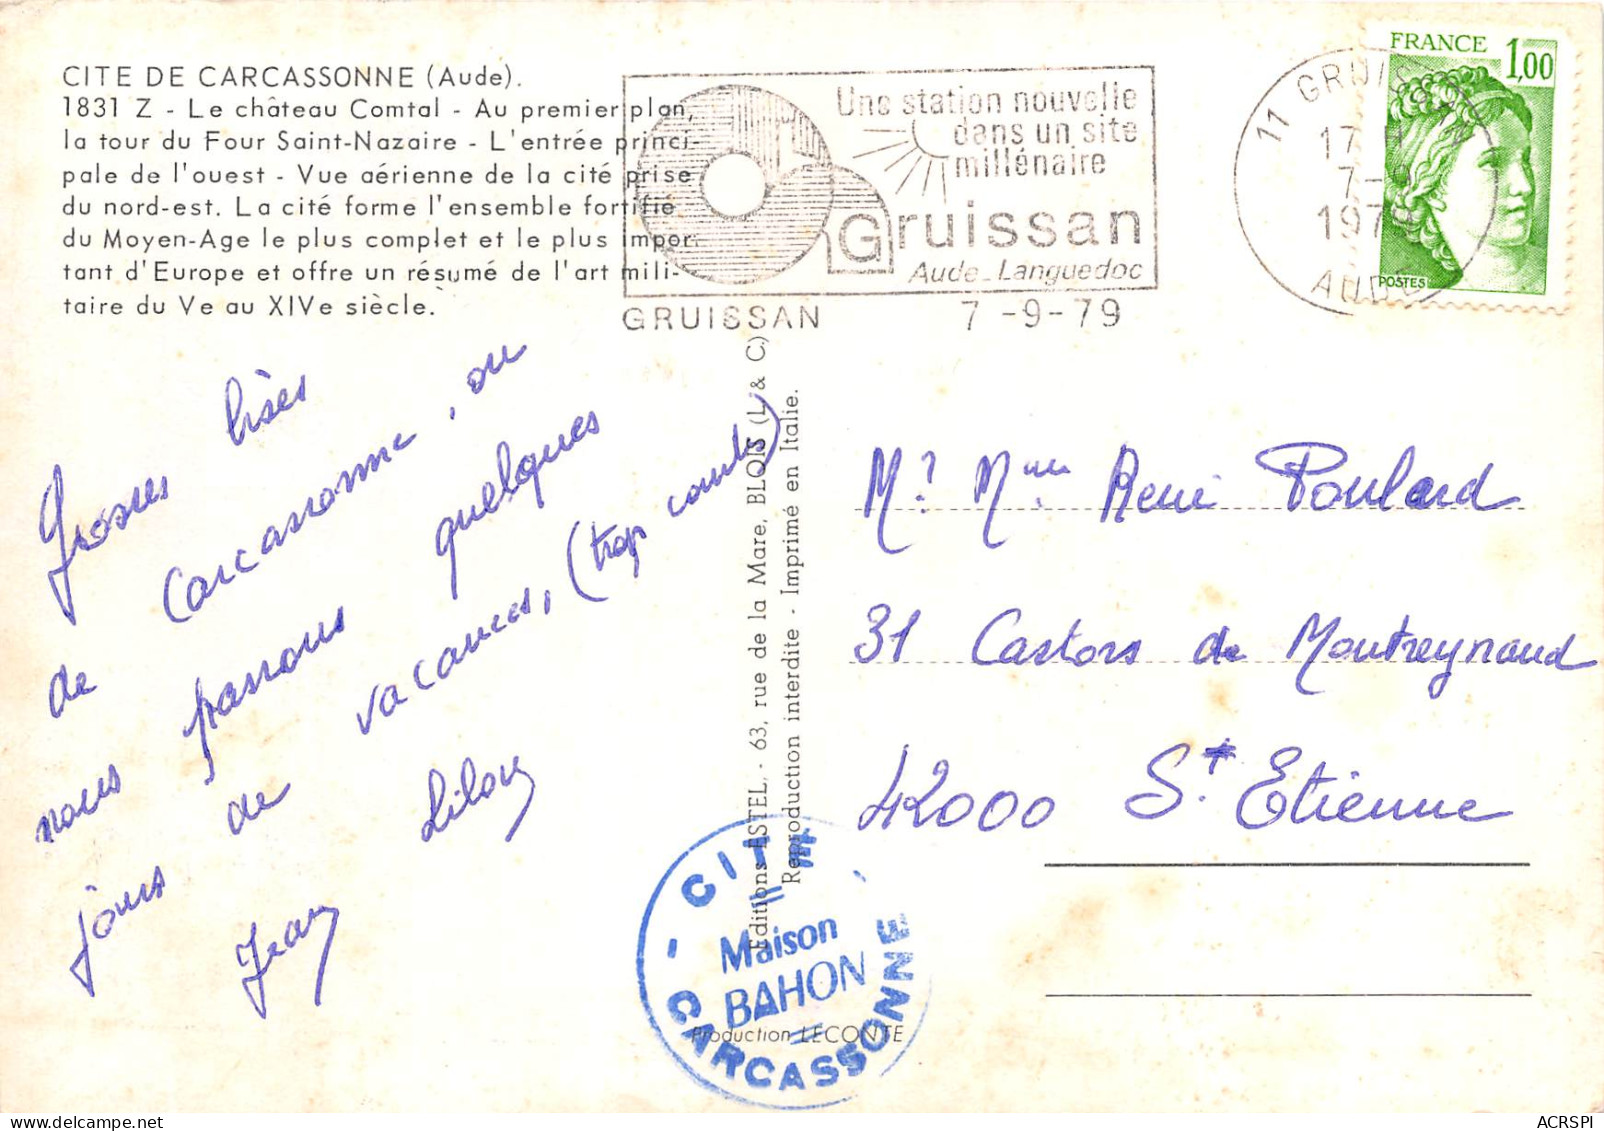 CITE DE CARCASSONNE (Aude).
1831 Z - Le château Comtal - Au premier plan,
la tour du Four Saint-Nazaire - L'entrée princi-
pale de l'ouest - Vue aérienne de la cité prise
du nord-est. La cité forme l'ensemble fortifié
du Moyen-Age le plus complet et le plus impor-
tant d'Europe et offre un résumé de l'art mili-
taire du Ve au XIVe siècle.
Une station nouvelle
dans un site
millénaire
Gruissan
Aude-Languedoc
GRUISSAN 7 -9-79
11 GRUISSAN
17 H
7-9
1979
AUDE
FRANCE 1,00
POSTES
Grosses bises
de Carcassonne, ou
nous passons quelques
jours de vacances, (trop courtes)
Jean Lilou
Editions ASTEL, - 63, rue de la Mare, BLOIS (L & C)
Reproduction interdite - Imprimé en Italie.
Mr Mme René Poulard
31 Castors de Montreynaud
42000 St. Etienne
CITE
Maison
BAHON
CARCASSONNE
Production LECONTE
ACRSPI